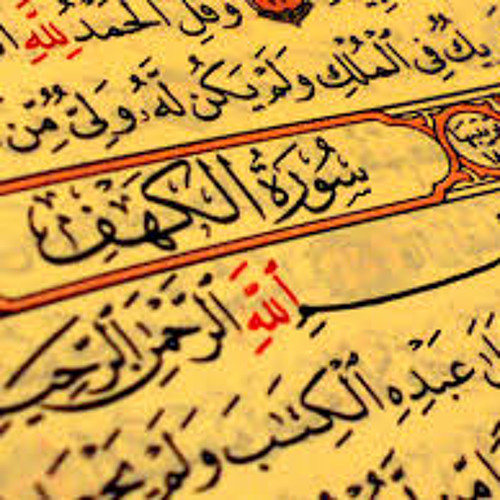 وَقُلِ ٱلْحَمْدُ لِلَّهِ
فِى ٱلْمُلْكِ وَلَمْ يَكُن لَّهُۥ وَلِىٌّ مِّنَ
سُورَةُ الكَهْفِ
ٱللَّهِ ٱلرَّحْمَٰنِ ٱلرَّحِيمِ
عَبْدِهِ ٱلْكِتَٰبَ وَلَمْ